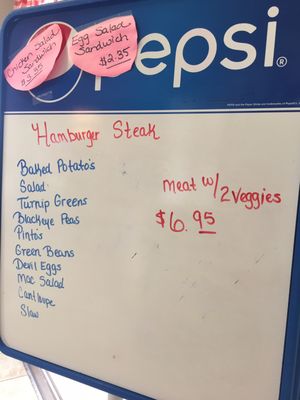 Chicken Salad
Sandwich
Egg Salad
Sandwich
$2.35
pepsi®
Hamburger Steak
Baked Potato's
Salad
Turnip Greens
Blackeye Peas
Pinto's
Green Beans
Devil Eggs
Mac Salad
Cantlope
Slaw
Meat w/2 Veggies
$6.95